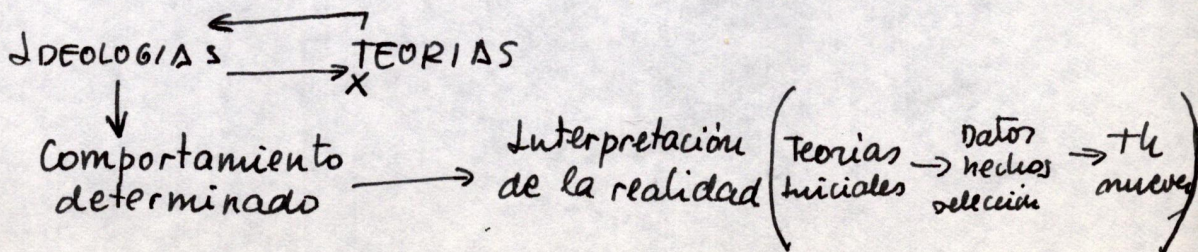 IDEOLOGIAS TEORIAS
X
Comportamiento
determinado
Interpretación
de la realidad
Teorias
iniciales
Datos
hechos
selección
Th
nueva